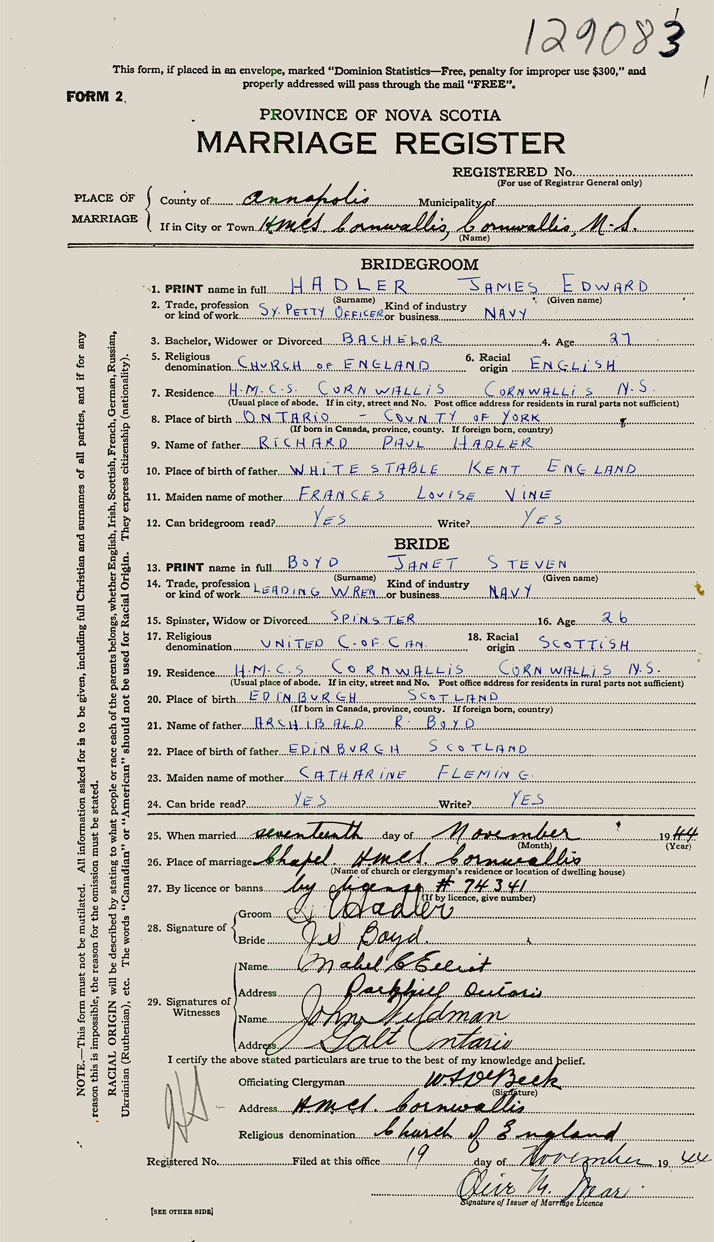 129083
This form, if placed in an envelope, marked "Dominion Statistics—Free, penalty for improper use $300," and
properly addressed will pass through the mail "FREE".
FORM 2
PROVINCE OF NOVA SCOTIA
MARRIAGE REGISTER
REGISTERED No.
(For use of Registrar General only)
PLACE OF MARRIAGE
County of Annapolis Municipality of
If in City or Town HMCS Cornwallis, Cornwallis, N-S.
(Name)
BRIDEGROOM
1. PRINT name in full HADLER JAMES EDWARD
(Surname) (Given name)
2. Trade, profession or kind of work SY. PETTY OFFICER Kind of industry or business NAVY
3. Bachelor, Widower or Divorced BACHELOR 4. Age 27
5. Religious denomination CHURCH OF ENGLAND 6. Racial origin ENGLISH
7. Residence H.M.C.S. CORNWALLIS CORNWALLIS N.S.
(Usual place of abode. If in city, street and No. Post office address for residents in rural parts not sufficient)
8. Place of birth ONTARIO - COUNTY OF YORK
(If born in Canada, province, county. If foreign born, country)
9. Name of father RICHARD PAUL HADLER
10. Place of birth of father WHITESTABLE KENT ENGLAND
11. Maiden name of mother FRANCES LOUISE VINE
12. Can bridegroom read? YES Write? YES
BRIDE
13. PRINT name in full BOYD JANET STEVEN
(Surname) (Given name)
14. Trade, profession or kind of work LEADING WREN Kind of industry or business NAVY
15. Spinster, Widow or Divorced SPINSTER 16. Age 26
17. Religious denomination UNITED C-OF-CAN. 18. Racial origin SCOTTISH
19. Residence H.M.C.S CORNWALLIS CORNWALLIS N.S.
(Usual place of abode. If in city, street and No. Post office address for residents in rural parts not sufficient)
20. Place of birth EDINBURGH SCOTLAND
(If born in Canada, province, county. If foreign born, country)
21. Name of father ARCHIBALD R. BOYD
22. Place of birth of father EDINBURGH SCOTLAND
23. Maiden name of mother CATHARINE FLEMING.
24. Can bride read? YES Write? YES
25. When married seventeenth day of November 1944
(Month) (Year)
26. Place of marriage Chapel HMCS. Cornwallis
(Name of church or clergyman's residence or location of dwelling house)
27. By licence or banns by license # 74341
(If by licence, give number)
28. Signature of
Groom J Hadler
Bride J.S Boyd.
29. Signatures of Witnesses
Name Mabel C Elliot
Address Parkhill Ontario
Name John Wildman
Address Galt Ontario
I certify the above stated particulars are true to the best of my knowledge and belief.
Officiating Clergyman W.S DeBeck
(Signature)
Address HMCS. Cornwallis
Religious denomination Church of England
Registered No. Filed at this office 19 day of November 1944
Signature of Issuer of Marriage Licence
[SEE OTHER SIDE]
NOTE.—This form must not be mutilated. All information asked for is to be given, including full Christian and surnames of all parties, and if for any
reason this is impossible, the reason for the omission must be stated.
RACIAL ORIGIN will be described by stating to what people or race each of the parents belongs, whether English, Irish, Scottish, French, German, Russian,
Ukrainian (Ruthenian), etc. The words "Canadian" or "American" should not be used for Racial Origin. They express citizenship (nationality).